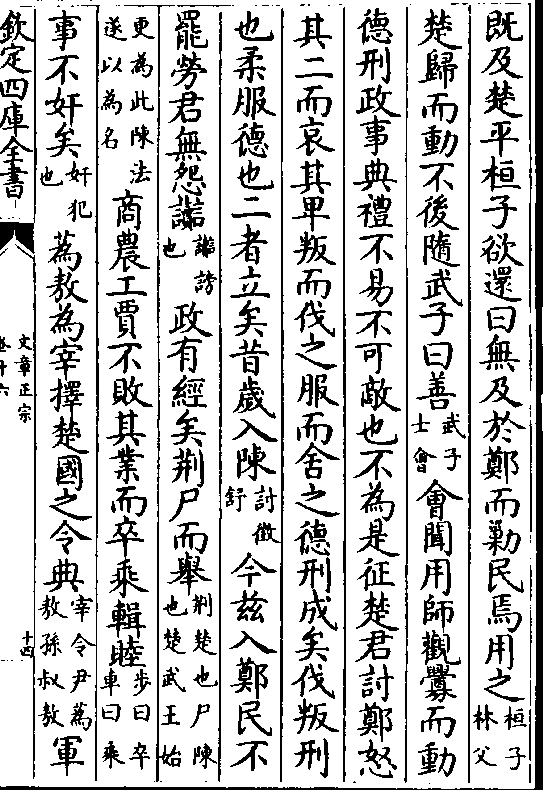 既及楚平桓子欲還曰無及於鄭而勦民焉用之桓子林父
楚歸而動不後隨武子曰善武子士會會聞用師觀釁而動
德刑政事典禮不易不可敵也不為是征楚君討鄭怒
其二而哀其卑叛而伐之服而舍之德刑成矣伐叛刑
也柔服德也二者立矣昔歲入陳討徵舒今兹入鄭民不
罷勞君無怨讟讟謗也政有經矣荆尸而舉荆楚也尸陳也楚武王始
更為此陳法遂以為名商農工賈不敗其業而卒乘輯睦步曰卒車曰乘
事不奸矣奸犯也蒍敖為宰擇楚國之令典宰令尹蒍敖孫叔敖軍
欽定四庫全書
文章正宗
卷十六
十四